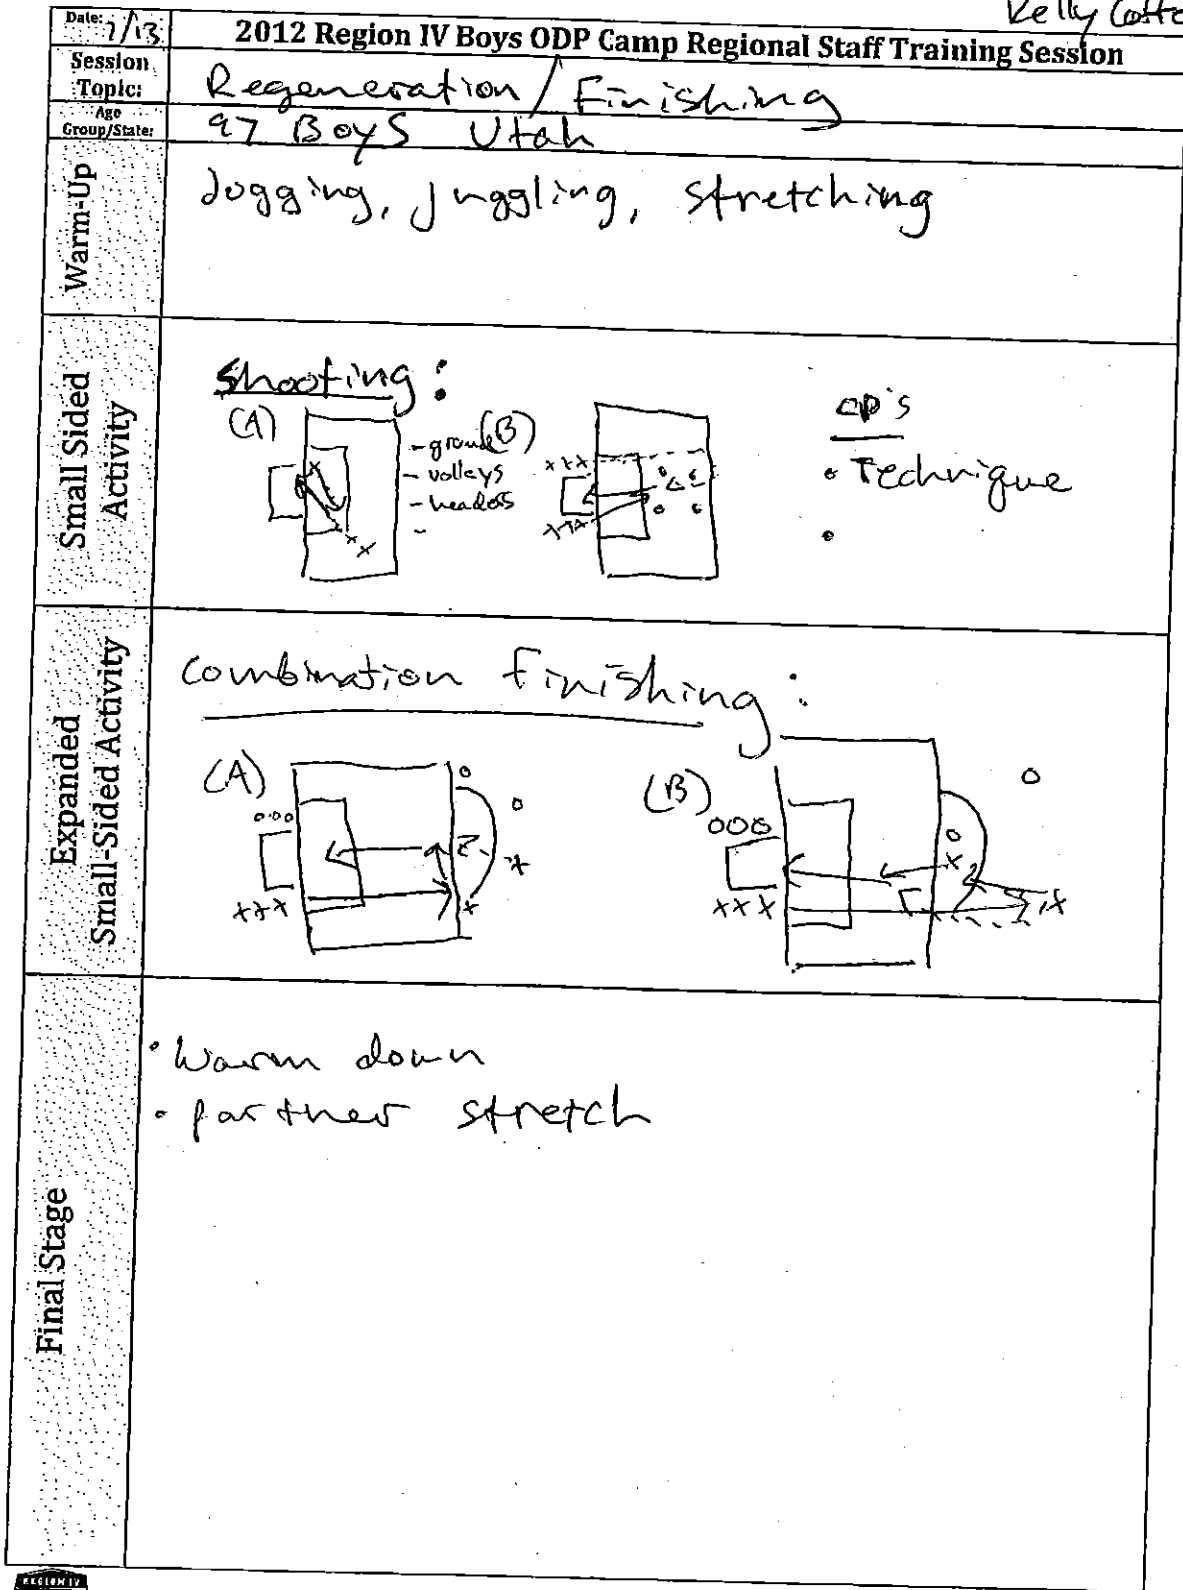 Kelly
Date: 7/13
2012 Region IV Boys ODP Camp Regional Staff Training Session
Session Topic:
Regeneration / Finishing
Age Group/State:
97 Boys Utah
Warm-Up
Jogging, juggling, stretching
Small Sided Activity
Shooting:
(A)
- volleys
- headers
-
(B)
xxx
xxx
CP's
• Technique
•
Expanded Small-Sided Activity
Combination Finishing:
(A)
ooo
xxx
(B)
ooo
xxx
Final Stage
• Warm down
• partner stretch
REGION IV